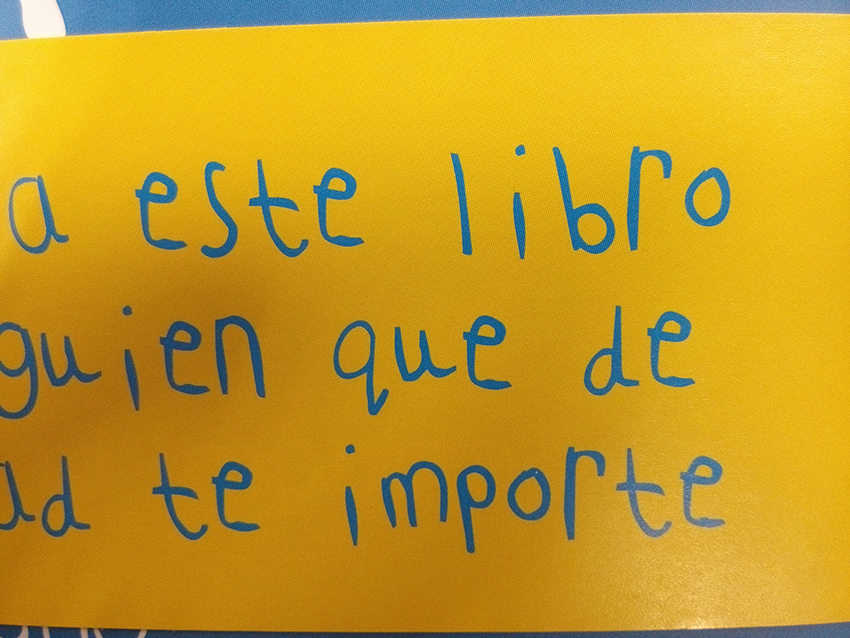 a este libro
guien que de
ad te importe